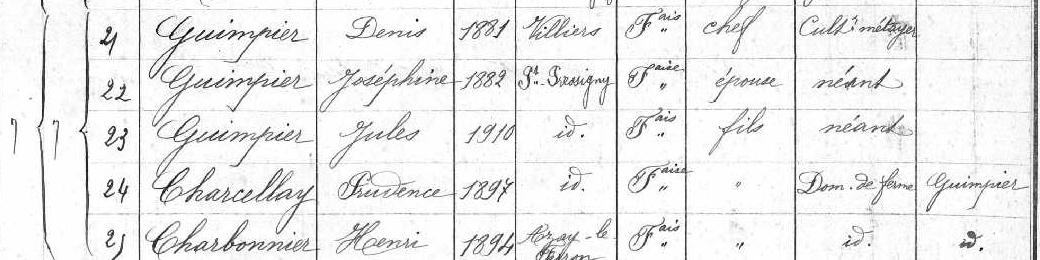 21 Guimpier Denis 1881 Villiers Fais chef Cultr métayer
22 Guimpier Joséphine 1882 Pt-Pressigny Faise " épouse néant
7 7 23 Guimpier Jules 1910 id. Fais " fils néant
24 Charcellay Prudence 1897 id. Faise " " Dom. de ferme Guimpier
25 Charbonnier Henri 1894 Azay-le Fais " " id. id.
Féron